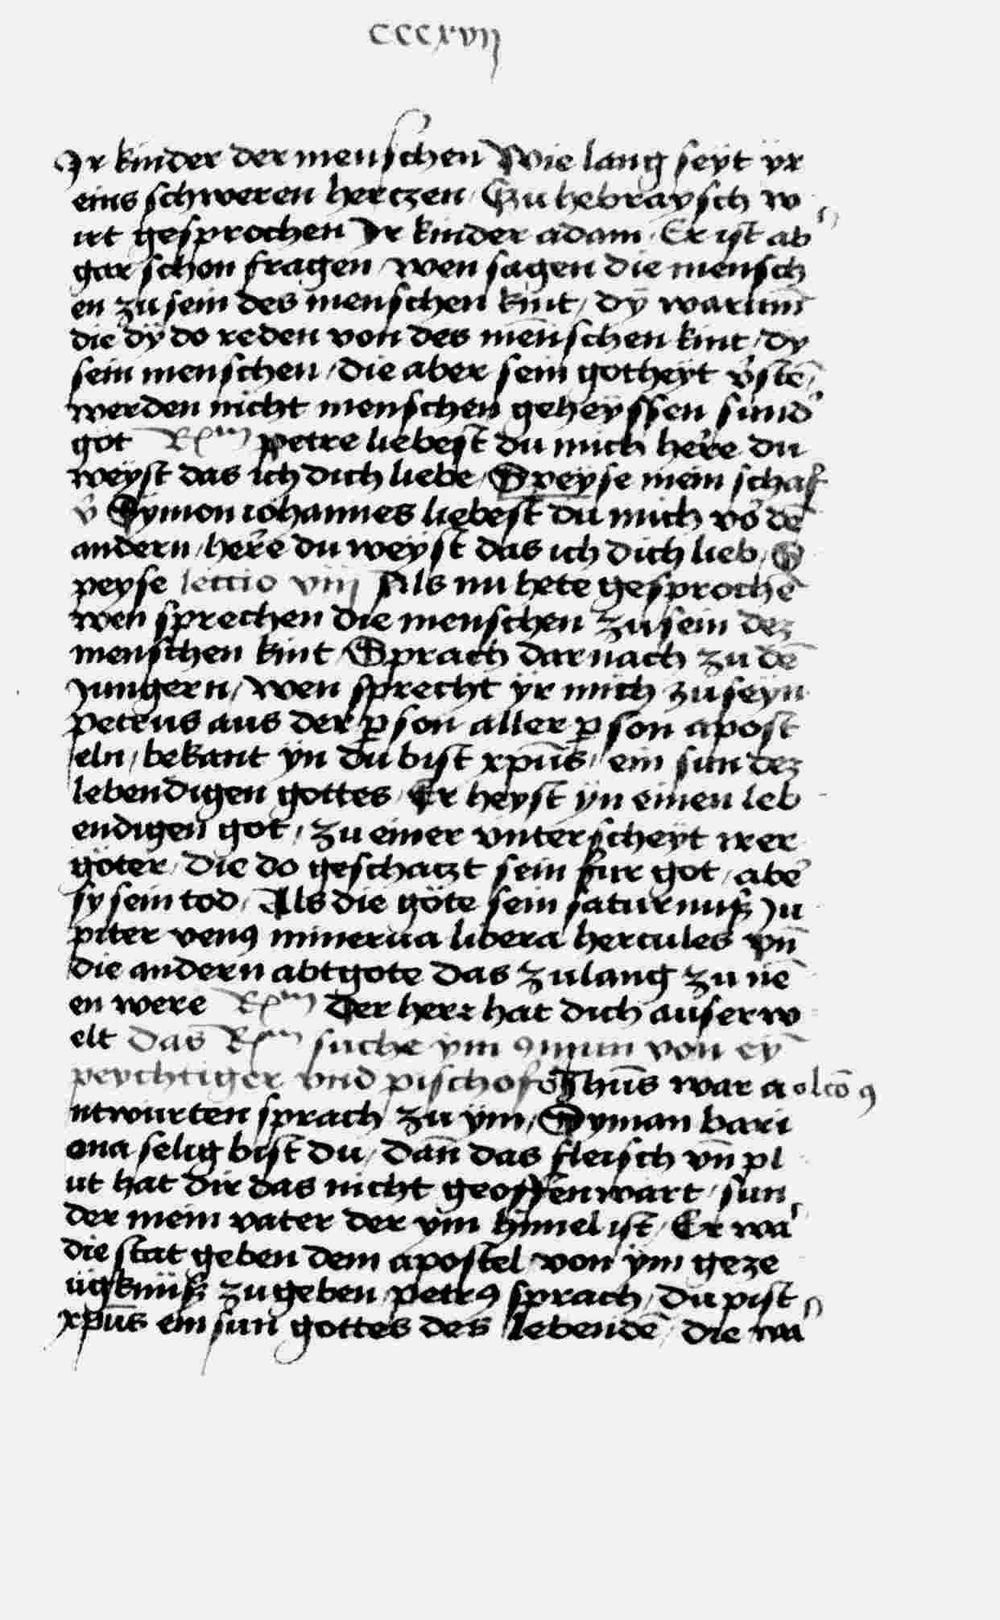 cccxvij
Ir kinder der menschen Wie lang seyt yr
eins schweren hertzen / Czu hebraysch w
irt gesprochen Ir kinder adam / Er ist ab
gar schon fragen / wen sagen die mensch
en zu sein des menschen kint / dÿ warum̄
die dÿ do reden von des menschen kint / dy
sein menschen / die aber sein gotheyt v̄stē /
werden nicht menschen geheyssen sund'
got Rm petre liebest du mich here du
weyst das ich dich liebe / Speyse mein schaf
v̄ Symon iohannes liebest du mich vo' dē
andern / here du weyst das ich dich lieb / S
peyse lectio viij Als nu hete gesprochē
wen sprechen die menschen zu sein dez
menschen kint / Sprach darnach zu dē
Jungern / wen sprecht ÿr mich zu seyn
petrus aus der ꝑson aller ꝑson apost
eln / bekant yn du bist xpūs / ein sun dez
lebendigen gottes / Er heyst ÿn einen leb
endigen got / zu einer vnterscheyt irer
göter / die do geschatzt sein fur got / abe'
sy sein tod / Als die göte sein saturnuß Ju
piter venꝰ minerua libera hercules vn̄
die andern abtgote das zulang zu nē
en were Rm Der herr hat dich auserw
elt das Rm suche ym ꝯmun von eȳ
peychtiger vnd pischof Jhūs war a olcō ꝯ
ntwurten sprach zu ym / Syman bari
ona selig bist du / dan̄ das fleisch vn̄ pl
ut hat dir das nicht geoffenwart / sun
der mein vater der ym himel ist / Er wa
die stat geben dem apostel von ÿm geze
ügknüß zu geben petrꝰ sprach / du pist
xpūs ein sun gottes des lebendē / die wa